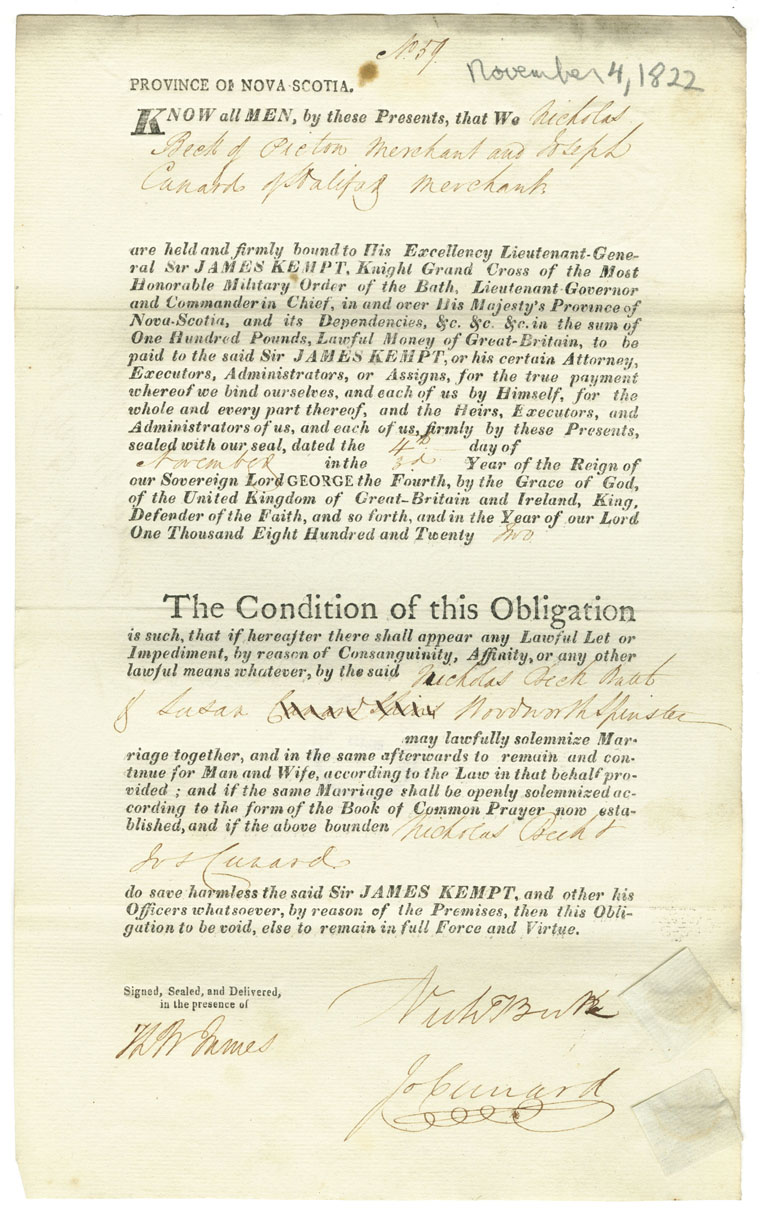 No 59.
November 4, 1822
PROVINCE OF NOVA-SCOTIA.
KNOW all MEN, by these Presents, that We Nicholas
Beck of Pictou Merchant and Joseph
Cunard of Halifax Merchant
are held and firmly bound to His Excellency Lieutenant-Gene-
ral Sir JAMES KEMPT, Knight Grand Cross of the Most
Honorable Military Order of the Bath, Lieutenant-Governor
and Commander in Chief, in and over His Majesty's Province of
Nova-Scotia, and its Dependencies, &c. &c. &c. in the sum of
One Hundred Pounds, Lawful Money of Great-Britain, to be
paid to the said Sir JAMES KEMPT, or his certain Attorney,
Executors, Administrators, or Assigns, for the true payment
whereof we bind ourselves, and each of us by Himself, for the
whole and every part thereof, and the Heirs, Executors, and
Administrators of us, and each of us, firmly by these Presents,
sealed with our seal, dated the 4th day of
November in the 3d Year of the Reign of
our Sovereign Lord GEORGE the Fourth, by the Grace of God,
of the United Kingdom of Great-Britain and Ireland, King,
Defender of the Faith, and so forth, and in the Year of our Lord
One Thousand Eight Hundred and Twenty two
The Condition of this Obligation
is such, that if hereafter there shall appear any Lawful Let or
Impediment, by reason of Consanguinity, Affinity, or any other
lawful means whatever, by the said Nicholas Beck Batch
& Susan Woodworth Spinster
may lawfully solemnize Mar-
riage together, and in the same afterwards to remain and con-
tinue for Man and Wife, according to the Law in that behalf pro-
vided ; and if the same Marriage shall be openly solemnized ac-
cording to the form of the Book of Common Prayer now esta-
blished, and if the above bounden Nicholas Beck &
Jos Cunard
do save harmless the said Sir JAMES KEMPT, and other his
Officers whatsoever, by reason of the Premises, then this Obli-
gation to be void, else to remain in full Force and Virtue.
Signed, Sealed, and Delivered,
in the presence of
Nichs Beck
Th W James
Jos Cunard